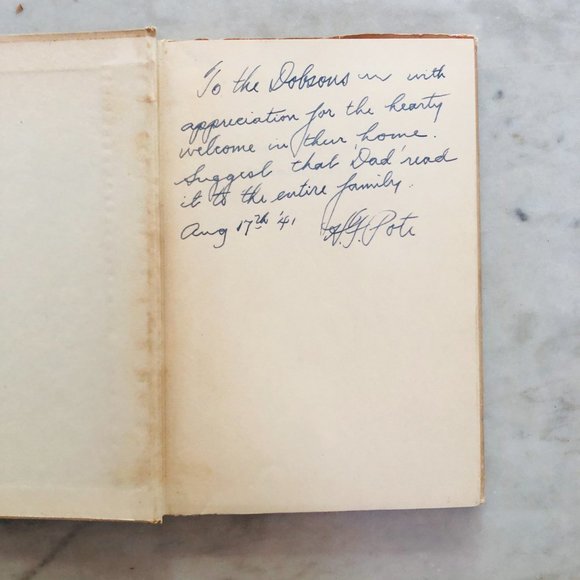 To the Dobsons with
appreciation for the hearty
welcome in their home.
Suggest that 'Dad' read
it to the entire family.
Aug 17th '41 H.G. Pote